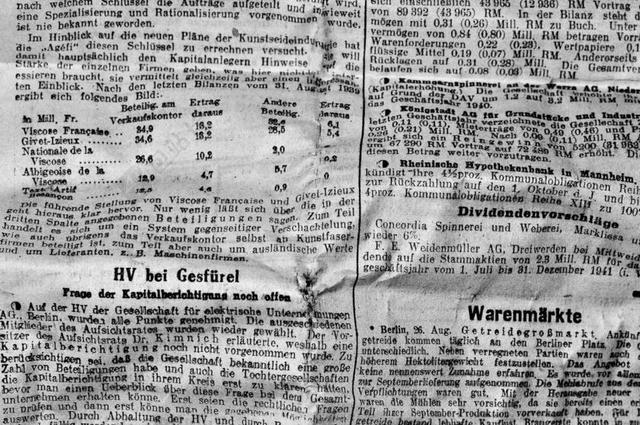 nach welchem Schlüssel die Aufträge aufgeteilt und
eine Spezialisierung und Rationalisierung vorgenommen
ist nie bekannt geworden.
Im Hinblick auf die neuen Pläne der Kunstseidenindustrie hat
die „Agéfi" diesen Schlüssel zu errechnen versucht.
damit hauptsächlich den Kapitalanlegern Hinweise auf
Stärke der einzelnen Firmen geben, was
essieren braucht, sie vermittelt gleichzeitig aber
ten Einblick. Nach den letzten Bilanzen vom 31. August 1939
ergibt sich folgendes Bild:
Beteilig. am Ertrag Andere Ertrag
In Mill. Fr. Verkaufskontor daraus Beteilig. daraus
Viscose Française 34,9 18,2
Givet-Izieux 34,6 18,2 28,5 5,4
Nationale de la
Viscose 26,6 10,2 2,0
Albigeoise de la
Viscose 12,9 4,7 5,7 0
0,9
Die führende Stellung von Viscose Française und Givet-Izieux
geht hieraus klar hervor. Nur wenig läßt sich über die in der
dritten Spalte angegebenen Beteiligungen sagen. Zum Teil
handelt es sich um ein System gegenseitiger Verschachtelung,
wie auch übrigens das Verkaufskontor selbst an Kunstfaser-
firmen beteiligt ist, zum Teil aber auch um ausländische Werte
und um Lieferanten, z. B. Maschinenfirmen.
HV bei Gesfürel
Frage der Kapitalberichtigung noch offen
Auf der HV der Gesellschaft für elektrische Unternehmungen
AG., Berlin, wurden alle Punkte genehmigt. Die ausgeschiedenen
Mitglieder des Aufsichtsrates wurden wieder gewählt. Der Vor-
sitzer des Aufsichtsrats Dr. Kimmich erläuterte, weshalb eine
Kapitalberichtigung noch nicht vorgenommen wurde. Zu
berücksichtigen sei, daß die Gesellschaft bekanntlich eine große
Zahl von Beteiligungen habe und auch die Tochtergesellschaften
die Kapitalberichtigung in ihrem Kreis erst zu klären hätten,
bevor man einen Ueberblick über diese Frage bei dem Gesamt-
unternehmen erhalten könne. Erst seien die rechtlichen Fragen
zu prüfen und dann erst könne man die
auswerten. Durch Abhaltung der HV und durch
schließlich 43 965 (12 936) RM Vortrag
von 89 392 (43 965) RM. In der Bilanz stehen
mögen mit 0,31 (0,26) Mill. RM zu Buch. Unter
vermögen von 0,84 (0,80) Mill. RM betragen Vorräte
Warenforderungen 0,22 (0,23), Wertpapiere
flüssige Mittel 0,19 (0,07) Mill. RM. Andererseits
Rücklagen auf 0,31 (0,28) Mill. RM. Die Gesamt
laufen sich auf 0,08 (0,03) Mill. RM.
Kammgarnspinnerei
(Kapitalerhöhung.) Die Gesellschaft
Grund der DAV um 1,2 auf 3,2 Mill. RM
das Geschäftsjahr 1940.
Königstadt AG für Grundstücke und Industrie
letzten Geschäftsjahr verzeichnete die Gesellschaft
(0,21) Mill. RM. Nach 0,06 (0,11) Mill. RM
ein Reingewinn von 5200 (31 982)
um 67 290 RM Vortrag auf 72 489 RM erhöht.
diesen Betrag weiter vorzutragen.
Rheinische Hypothekenbank in Mannheim,
kündigt ihre 4½proz. Kommunalobligationen
zur Rückzahlung auf den 1. Oktober
4proz. Kommunalobligationen Reihe XIII zu 100
Dividendenvorschläge
Concordia Spinnerei und Weberei, Marklissa
wieder 6%.
F. E. Weidenmüller AG, Dreiwerden bei Mittweida
dends auf die Stammaktien von 2,3 Mill. RM für
geschäftsjahr vom 1. Juli bis 31. Dezember 1941
Warenmärkte
* Berlin, 26. Aug. Getreidegroßmarkt.
getreide kommen täglich an den Berliner Platz. Die
unterschiedlich. Neben verregneten Partien waren auch
höherem Hektolitergewicht festzustellen. Das Angebot
keine nennenswert Zunahme erfahren. Es wurde vor allem
zur Septemberlieferung aufgenommen. Die Mehlabrufe aus den
Verpflichtungen waren gut. Mit der Herausgabe neuer
waren die Mühlen sehr vorsichtig, da sie bereits einen
Teil ihrer September-Produktion vorverkauft haben. Für
getreide bestand lebhafte Kauflust. Braugerste konnte